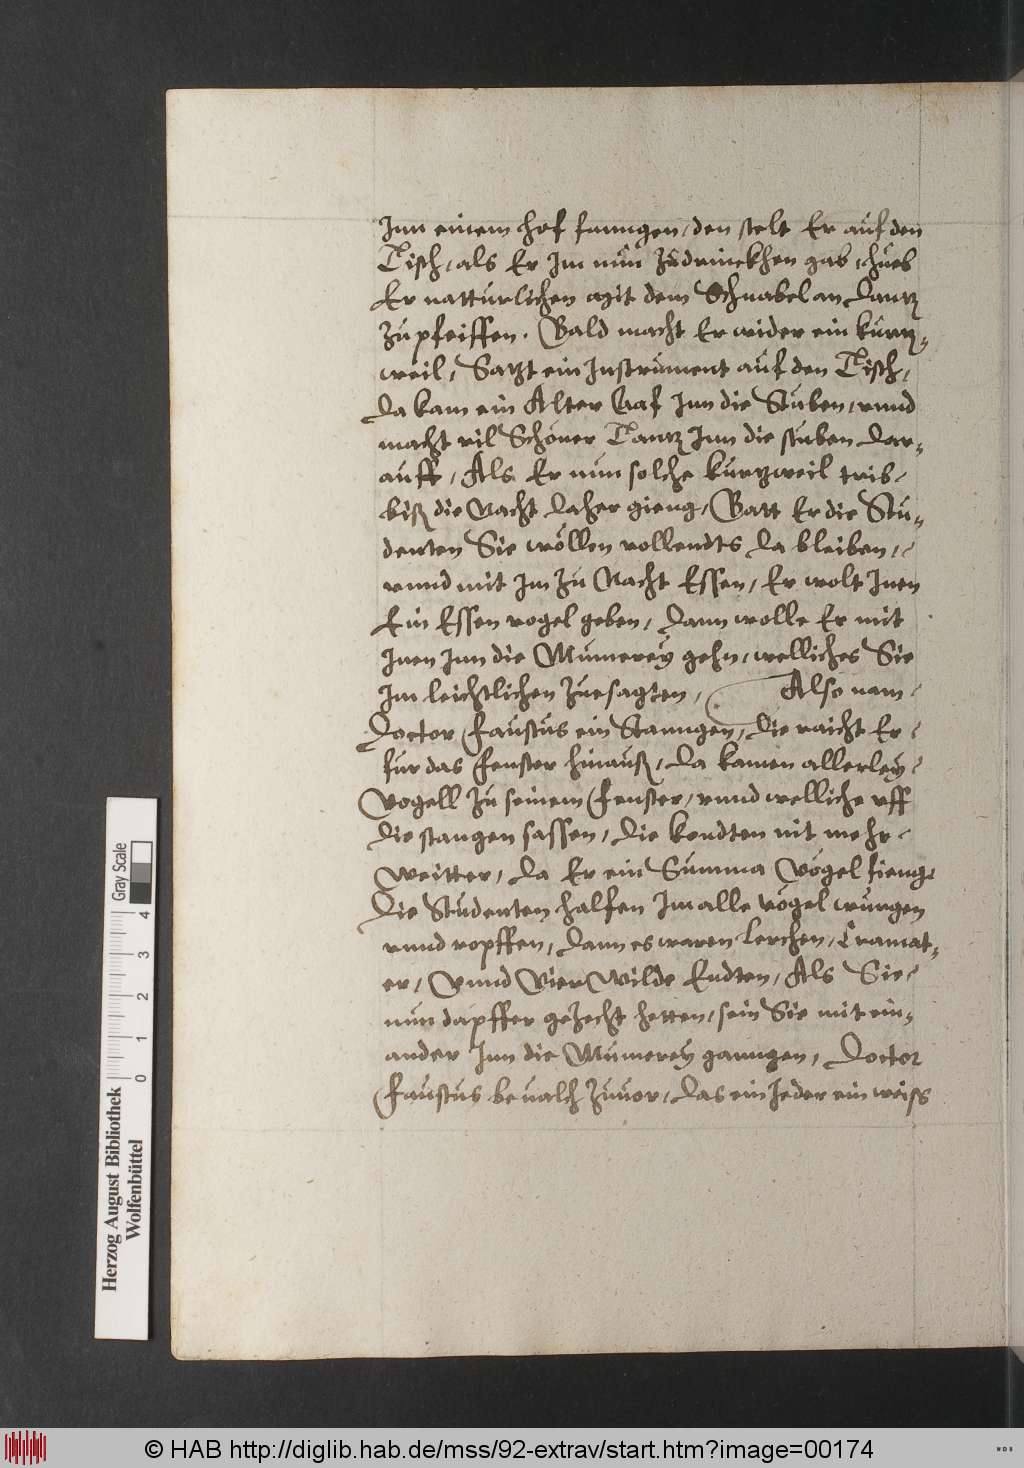 Inn einem hof fanngen, den stelt Er auf den
Tisch, als Er Im nůn zůdrinckhen gab, hůeb
Er natturlichen mit dem Schnabel an Dantz
zu pfeiffen. Bald macht Er wider ein kurtz-
weil, Satzt ein Instrůment auf den Tisch,
da kam ein Alter Aaf Inn die Stuben, vnnd
macht vil Schöner Tantz Inn die stuben dar-
auff, Als Er nun solche kurtzweil trib
biß die Nacht daher gieng, Batt Er die Stu-
denten Sie wöllen vollendts da bleiben,
vnnd mit Im zu Nacht Essen, Er wolt Inen
Ein Essen vogel geben, dann wolle Er mit
Inen Inn die Mumerey gehn, welliches Sie
Im leichtlichen zuesagten, Also nam
Doctor Faustus ein Stanngen, die raicht Er
fur das Fenster hinauß, da kamen allerley
Vogell zu seinem Fenster, vnnd welliche vff
die stangen sassen, die kondten nit mehr
weitter, da Er ein Summa Vögel fieng,
Die Studenten halfen Im alle vögel wurgen
vnnd ropffen, dann es waren Lerchen, Cramat-
er, Vnnd Vier Wilde Endten, Als Sie
nun dapffer gezecht hetten, sein Sie mit ein-
ander Inn die Mumerey ganngen, Doctor
Faustus beualch zuuor, das ein Ieder ein weiss
Herzog August Bibliothek
Wolfenbüttel
0 1 2 3 4
Gray Scale
© HAB http://diglib.hab.de/mss/92-extrav/start.htm?image=00174
WDB